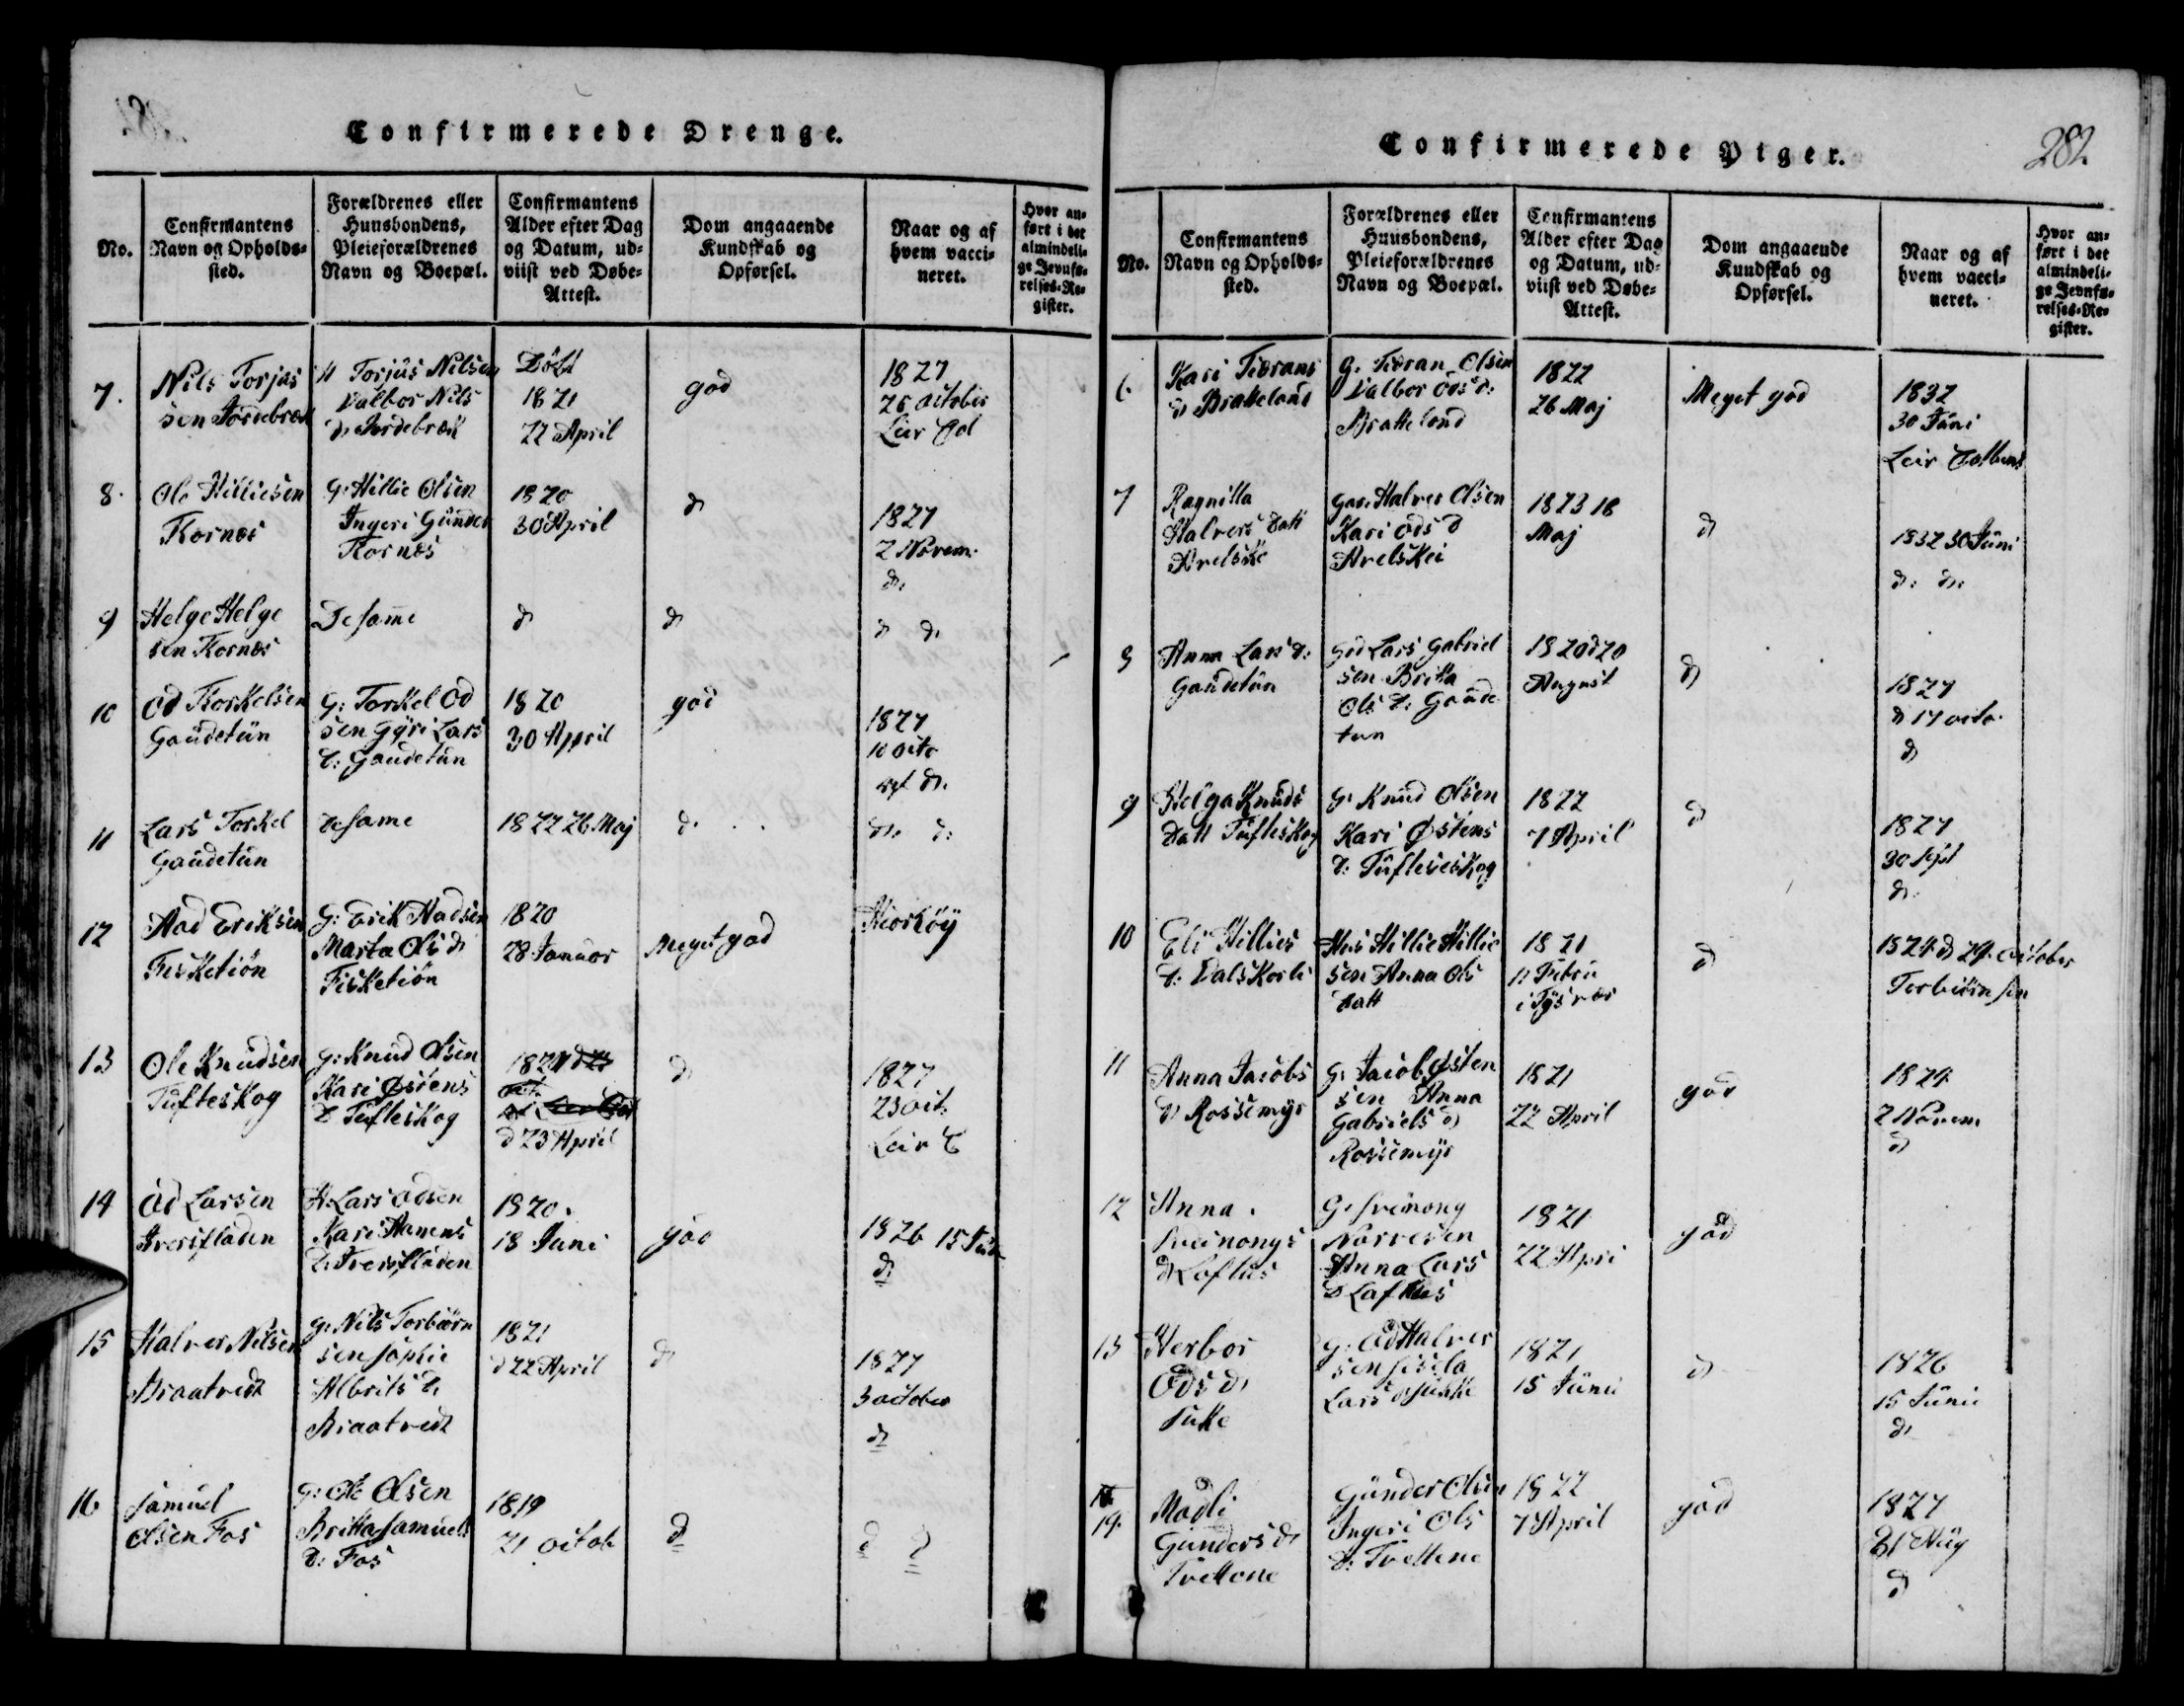 Confirmerede Drenge.
No.
Confirmantens
Navn og Opholds-
sted.
Forældrenes eller
Huusbondens,
Pleieforældrenes
Navn og Boepæl.
Confirmantens
Alder efter Dag
og Datum, ud-
viist ved Døbe-
Attest.
Dom angaaende
Kundskab og
Opførsel.
Naar og af
hvem vacci-
neret.
Hvor an-
ført i det
almindeli-
ge Jevnfø-
relses-Re-
gister.
7.
Nils Torjus
sen
Torjus Nilsen
Valbor Nils
Døbt
1821
22 April
god
1827
26 october
8.
Ole Hilliesen
Kornes
G: Hillie Olsen
Ingeri Gunder
Kornes
1820
30 April
d
1827
2 Novem.
d.
9
Helge Helge
sen Kornes
De same
d
d
d d.
10
Od Torkelsen
Gaudetun
G: Torkel Od
sen Gyri Lars
d: Gaudetun
1820
30 April
god
1827
10 octo
d.
11
Lars Torkel
Gaudetun
de same
1822 26 Maj
d.
d. d:
12
Aad Eriksen
Fisketiøn
G: Erik Aadsen
Marta Ols d
Fisketiøn
1820
28 Januar
Meget god
13
Ole Knudsen
Tufteskog
G: Knud Olsen
Kari Østens
d Tufteskog
d 23 April
d
1827
23 oct.
14
Od Larsen
Lars Odsen
Kari
1820.
18 Juni
god
1826 15 Jun
d
15
Halver Nilsen
Braatvedt
G: Nils Torbiørn
sen Sophie
Albrits d.
Braatvedt
1821
d 22 April
d
1827
3 october
d
16
Samuel
Olsen Fos
G: Ole Olsen
Britta Samuels
d: Fos
1819
21 octob
d
d d
Confirmerede Piger.
282.
No.
Confirmantens
Navn og Opholds-
sted.
Forældrenes eller
Huusbondens,
Pleieforældrenes
Navn og Boepæl.
Confirmantens
Alder efter Dag
og Datum, ud-
viist ved Døbe-
Attest.
Dom angaaende
Kundskab og
Opførsel.
Naar og af
hvem vacci-
neret.
Hvor an-
ført i det
almindeli-
ge Jevnfø-
relses-Re-
gister.
6
Kari Tiørans
d Brakeland
G. Tiøran Olsen
Valbor Ods d:
Brakeland
1822
26 Maj
Meget god
1832
30 Juni
7
Ragnilla
Halvers datt
Halver Olsen
Kari Ods d
1823 18
Maj
d
1832 30 Juni
d: d.
8
Anna Lars d:
Gaudetun
Lars Gabriel
sen Britta
Ols d: Gaude
tun
1820 d 20
August
d
1827
d 17 octo.
d
9
Helga Knuds
datt Tufteskog
G: Knud Olsen
Kari Østens
d: Tufteskog
1822
7 April
d
1827
30 Sept
d.
10
Eli Hillies
d: Valskorli
Hus Hillie Hillie
sen Anna Ols
datt
1821
11 Febru
i Tysvær
d
1824 d 29. october
Torbiørnsen
11
Anna Jacobs
d Rossemyr
G: Jacob Østen
sen Anna
Gabriels d
Rossemyr
1821
22 April
god
1824
2 Novem.
d
12
Anna
Sveinongs
d Loftus
G. Sveinong
Norvesen
Anna Lars
d Loftus
1821
22 Apri
god
13
Herbor
Ods d
G: Od Halver
sen Sisela
Lars d
1821
15 Junii
d
1826
15 Junii
d
14.
Madli
Gunders d
Tvettene
Gunder Olsen
Ingeri Ols
d: Tvettene
1822
7 April
god
1827
31 Aug
d